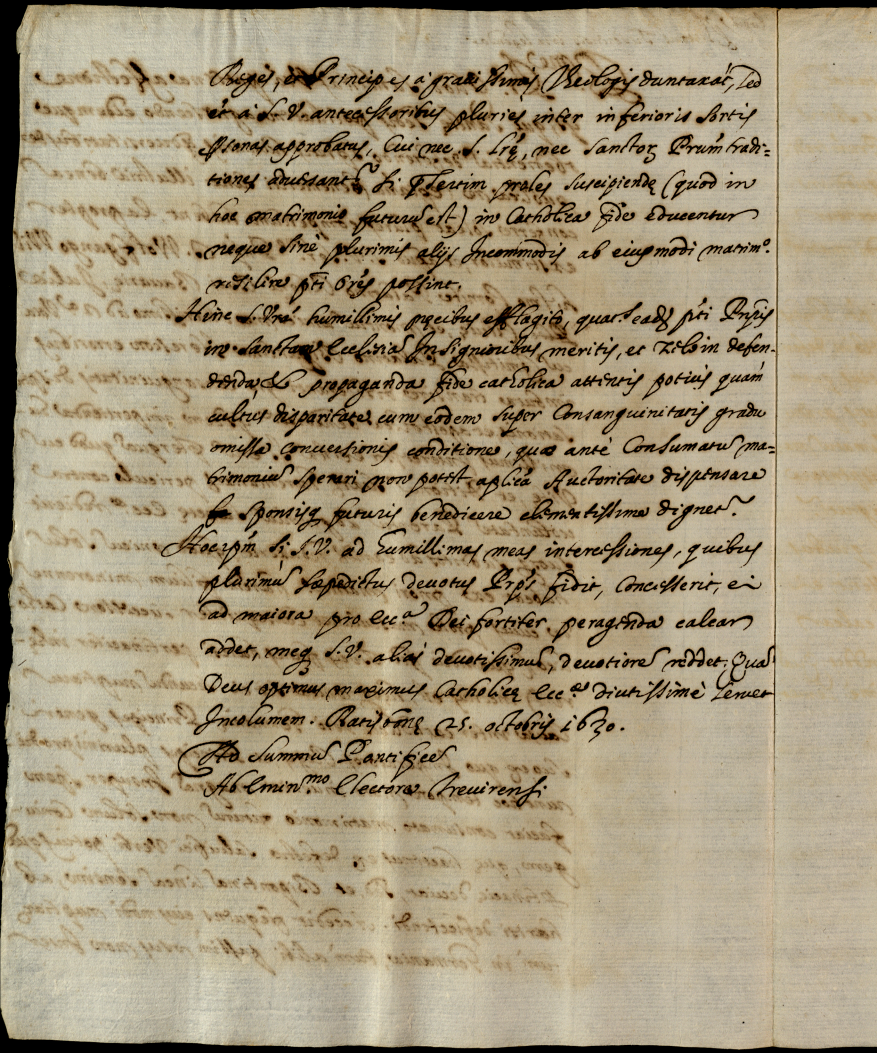 Reges, et Principes à gravissimis Theologis duntaxat, sed
et à S. V. antecessoribus pluries inter inferioris sortis
p̱sonas approbatus, Cui nec S. Lrę, nec Sanctoꝝ Prum̃ tradi=
tiones adversantr̃ si p̱sertim proles suscipiendę (quod in
hoc matrimonio futurũ est) in Catholica fide educentur
neque sine plurimis alijs Incommodis ab eiusmodi matrimº.
resilire pti Ores possint.
Hinc S. Vrã humillimis pręcibus efflagitò, quat.s eadẽ pti Pnpis
in Sanctam Ecclesiã Insignioribus meritis, et Zelo in defen-
denda & propaganda fide catholica attentis potius quàm
cultus disparitate cum eodem super Consanguinitatis gradu
omissa conversionis conditione, quae antè Consumatũ ma=
trimoniũ sperari non potest, aplica Auctoritate dispensare
sponsisq futuris benedicere clementissime dignetr̃.
Hoc ipm̃ si S. V. ad humillimas meas intercessiones, quibus
plurimũ saepedictus devotus Prps fidit, Concesserit, ei
ad maiora pro Ecc.ª Dei fortiter peragenda calcar
addet, meq S. V. aliàs devotissimũ, devotiorẽ reddet; Quã
Deus optimus maximus Catholicę Ecc.ę diutissimè servet
Incolumem. Ratisbonę 25. octobris 1630.
Ad Summũ Pontificẽ
Ab Emin.mo Electore Trevirensi